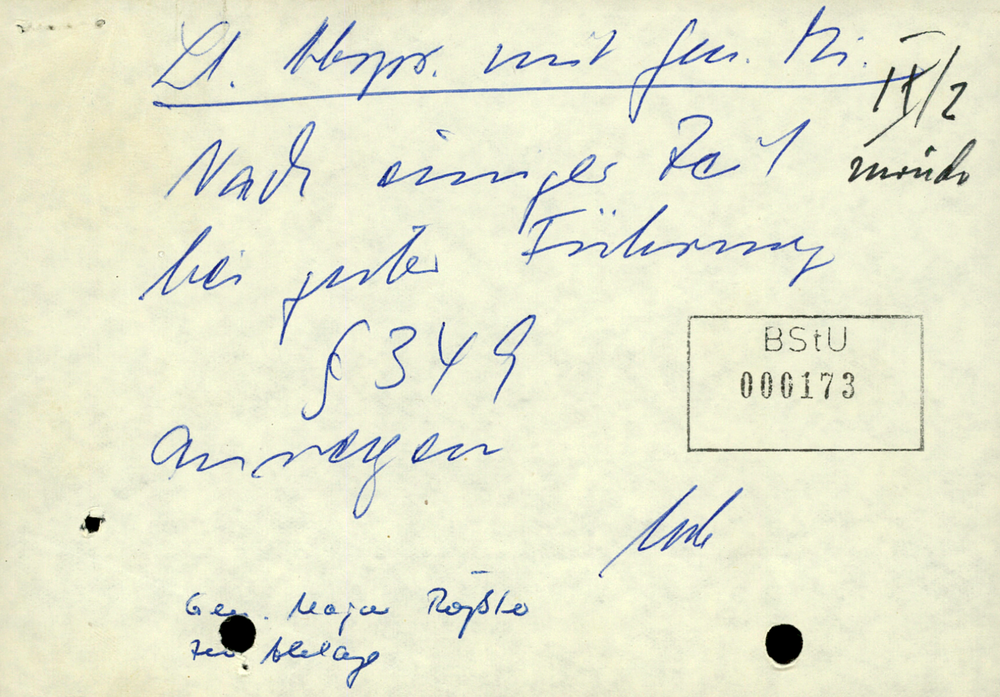 Lt. Abspr. mit Gen. Mi.
IX/2
mündl
Nach einiger Zeit
bei guter Führung
§ 349
anregen
BStU
000173
Gen. Major Roßle
zur Ablage